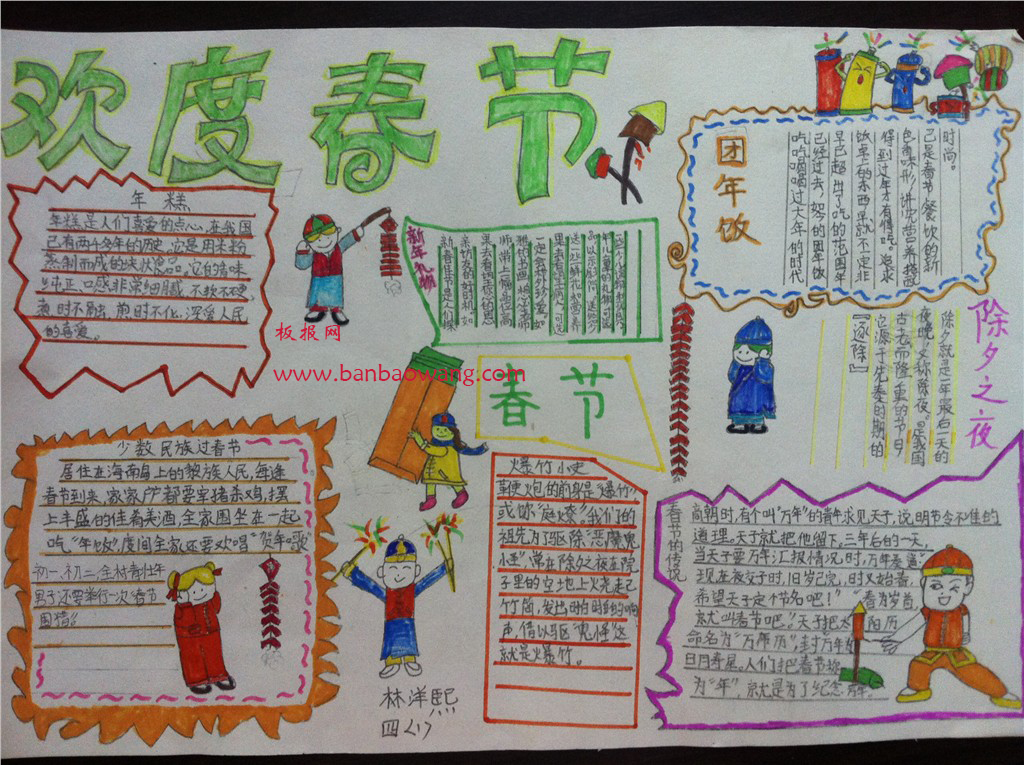 欢度春节
年糕
年糕是人们喜爱的点心,在我国
已有两千多年的历史,它是用米粉
蒸制而成的块状
纯正,口感非常细腻,不软不硬,
煎时不化,深受人民
的喜爱。
新年礼物
团年饭
时尚。
已是春节餐饮的新
得到过年才有得吃。追求
饭桌有的东西早就不定非
早已超出了吃的范围年
已经过去,如今的团年饭
吃吃喝喝过大年的时代
除夕之夜
除夕就是一年最后一天的
夜晚,又称除夜。是我国
古老而隆重的节日,
它源于先秦时期的
『逐除』
板报网
www.banbaowang.com
春节
少数民族过春节
居住在海南岛上的黎族人民,每逢
春节到来,家家户户都要宰猪杀鸡,摆
上丰盛的佳肴美酒,全家围坐在一起
吃“年饭”,席间全家还要欢唱“贺年歌”
初一、初二,全村青壮年
男子还要举行一次“春节
围猎”。
爆竹小史
鞭炮的前身是“爆竹”
或你“庭燎”。我们的
祖先为了驱除“恶魔鬼
怪”,常在除夕之夜在院
子里的空地上火光起
竹筒,发出啪啪的响
声,借以驱“鬼怪”这
就是爆竹。
春节的传说
商朝时,有个叫“万年”的青年求见天子,说明节令不准的
道理。天子就把他留下,三年后的一天,
当天子要万年汇报情况时,万年奏道:
现在夜交子时,旧岁已完,时又始春,
希望天子定个节名吧!”“春为岁首,
就叫春节吧。”天子把太阳历
命名为“万年历”,封万年为
日月寿星。人们把春节称
为“年”,就是为了纪念万年。
林洋熙
四<1>